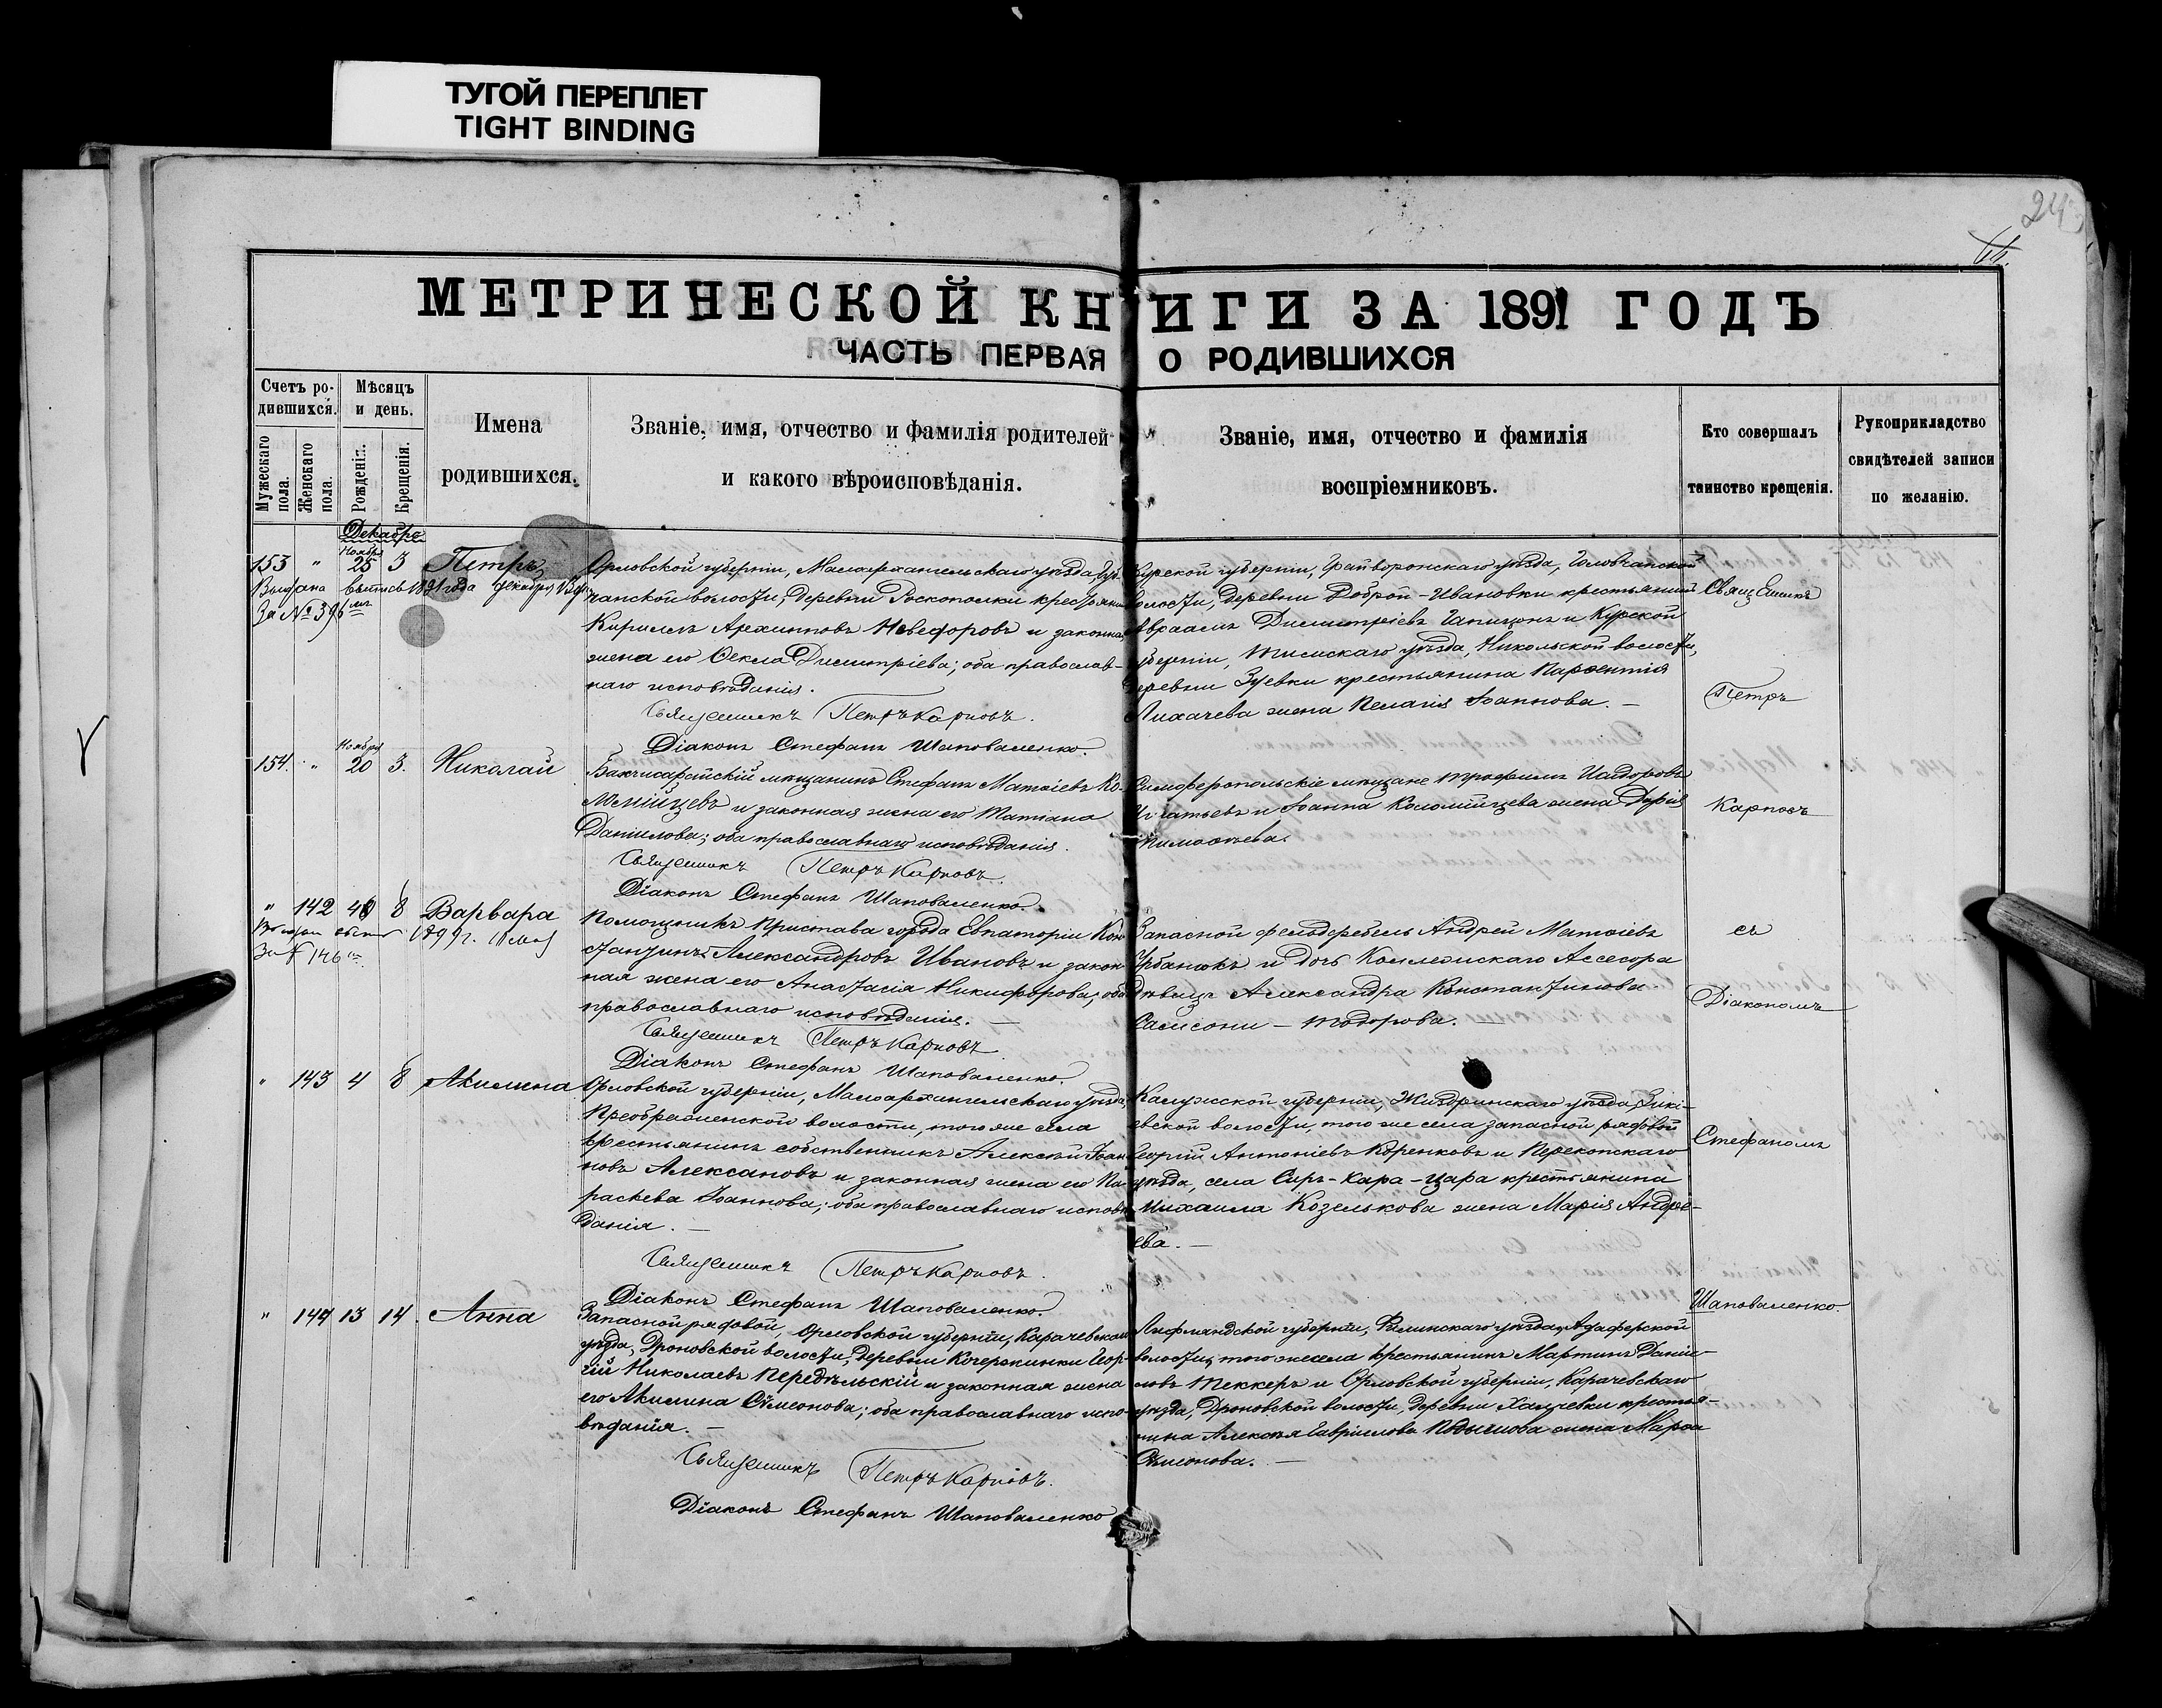 ТУГОЙ ПЕРЕПЛЕТ
TIGHT BINDING
24
МЕТРИЧЕСКОЙ КНИГИ ЗА 1891 ГОДЪ
ЧАСТЬ ПЕРВАЯ О РОДИВШИХСЯ
Счетъ ро-
дившихся.
Мужескаго пола.
Женскаго пола.
Мѣсяцъ
и день.
Рожденія.
Крещенія.
Имена
родившихся.
Званіе, имя, отчество и фамилія родителей
и какого вѣроисповѣданія.
Званіе, имя, отчество и фамилія
воспріемниковъ.
Кто совершалъ
таинство крещенія.
Рукоприкладство
свидѣтелей записи
по желанію.
Декабрь
Ноября
153 " 25 3 Петръ
Выдана выпись 1891 года декабря
За № 396
Орловской губерніи, Малоархангельскаго уѣзда
чанской волости, деревни крестьянинъ
Кириллъ Архиповъ Невефоровъ и законная
жена его Ѳекла Димитріева; оба православ-
наго исповѣданія.
Священникъ Петръ Карповъ.
Діаконъ Стефанъ Шаповаленко.
Курской губерніи, Грайворонскаго уѣзда,
волости, деревни Доброй-Ивановки крестьянинъ
Авраамъ Димитріевъ и Курской
губерніи, Тимскаго уѣзда, Никольской волости,
деревни Зуевки крестьянина Парѳентія
Лихачева жена Пелагія Іоаннова. —
Священникъ
Петръ
Ноября
154. " 20 3. Николай
Бахчисарайскій мѣщанинъ Стефанъ Матѳіевъ Ко-
ломійцевъ и законная жена его Татіана
Даніилова; оба православнаго исповѣданія.
Священникъ Петръ Карповъ.
Діаконъ Стефанъ Шаповаленко.
Симферопольскіе мѣщане Трофимъ Исидоровъ
Игнатьевъ и Іоанна Коломійцева жена Дарія
Тимоѳеева.
Карповъ
" 142 4 8 Варвара
1899 г.
За № 146
Помощникъ Пристава города Евпаторіи Кон-
стантинъ Александровъ Ивановъ и закон-
ная жена его Анастасія Никифорова; оба
православнаго исповѣданія. —
Священникъ Петръ Карповъ
Діаконъ Стефанъ Шаповаленко.
Запасной фельдфебель Андрей Матѳіевъ
Урбанокъ и дочь Коллежскаго Ассесора
дѣвица Александра Константинова
Самсони-Тодорова. —
съ
Діакономъ
" 143 4 8 Акилина
Орловской губерніи, Малоархангельскаго уѣзда,
Преображенской волости, того же села
крестьянинъ собственникъ Алексѣй Іоан-
новъ Алексановъ и законная жена его Па-
раскева Іоаннова; оба православнаго исповѣ-
данія. —
Священникъ Петръ Карповъ.
Діаконъ Стефанъ Шаповаленко.
Калужской губерніи, Жиздринскаго уѣзда, Зики-
евской волости, того же села запасной рядовой
Георгій Антоніевъ Коренковъ и Перекопскаго
уѣзда, села Сиръ-Кара-Цара крестьянина
Михаила Козелькова жена Марія Андре-
ева. —
Стефаномъ
" 144 13 14. Анна
Запасной рядовой, Орловской губерніи, Карачевскаго
уѣзда, Дроновской волости, деревни Кочержинки Геор-
гій Николаевъ Передѣльскій и законная жена
его Акилина Симеонова; оба православнаго испо-
вѣданія. —
Священникъ Петръ Карповъ.
Діаконъ Стефанъ Шаповаленко
Лифляндской губерніи, Феллинскаго уѣзда, Адаферской
волости, того же села крестьянинъ Мартинъ Даніи-
ловъ Теккеръ и Орловской губерніи, Карачевскаго
уѣзда, Дроновской волости, деревни крестья-
нина Алексѣя Гаврилова жена Марѳа
Симонова. —
Шаповаленко.